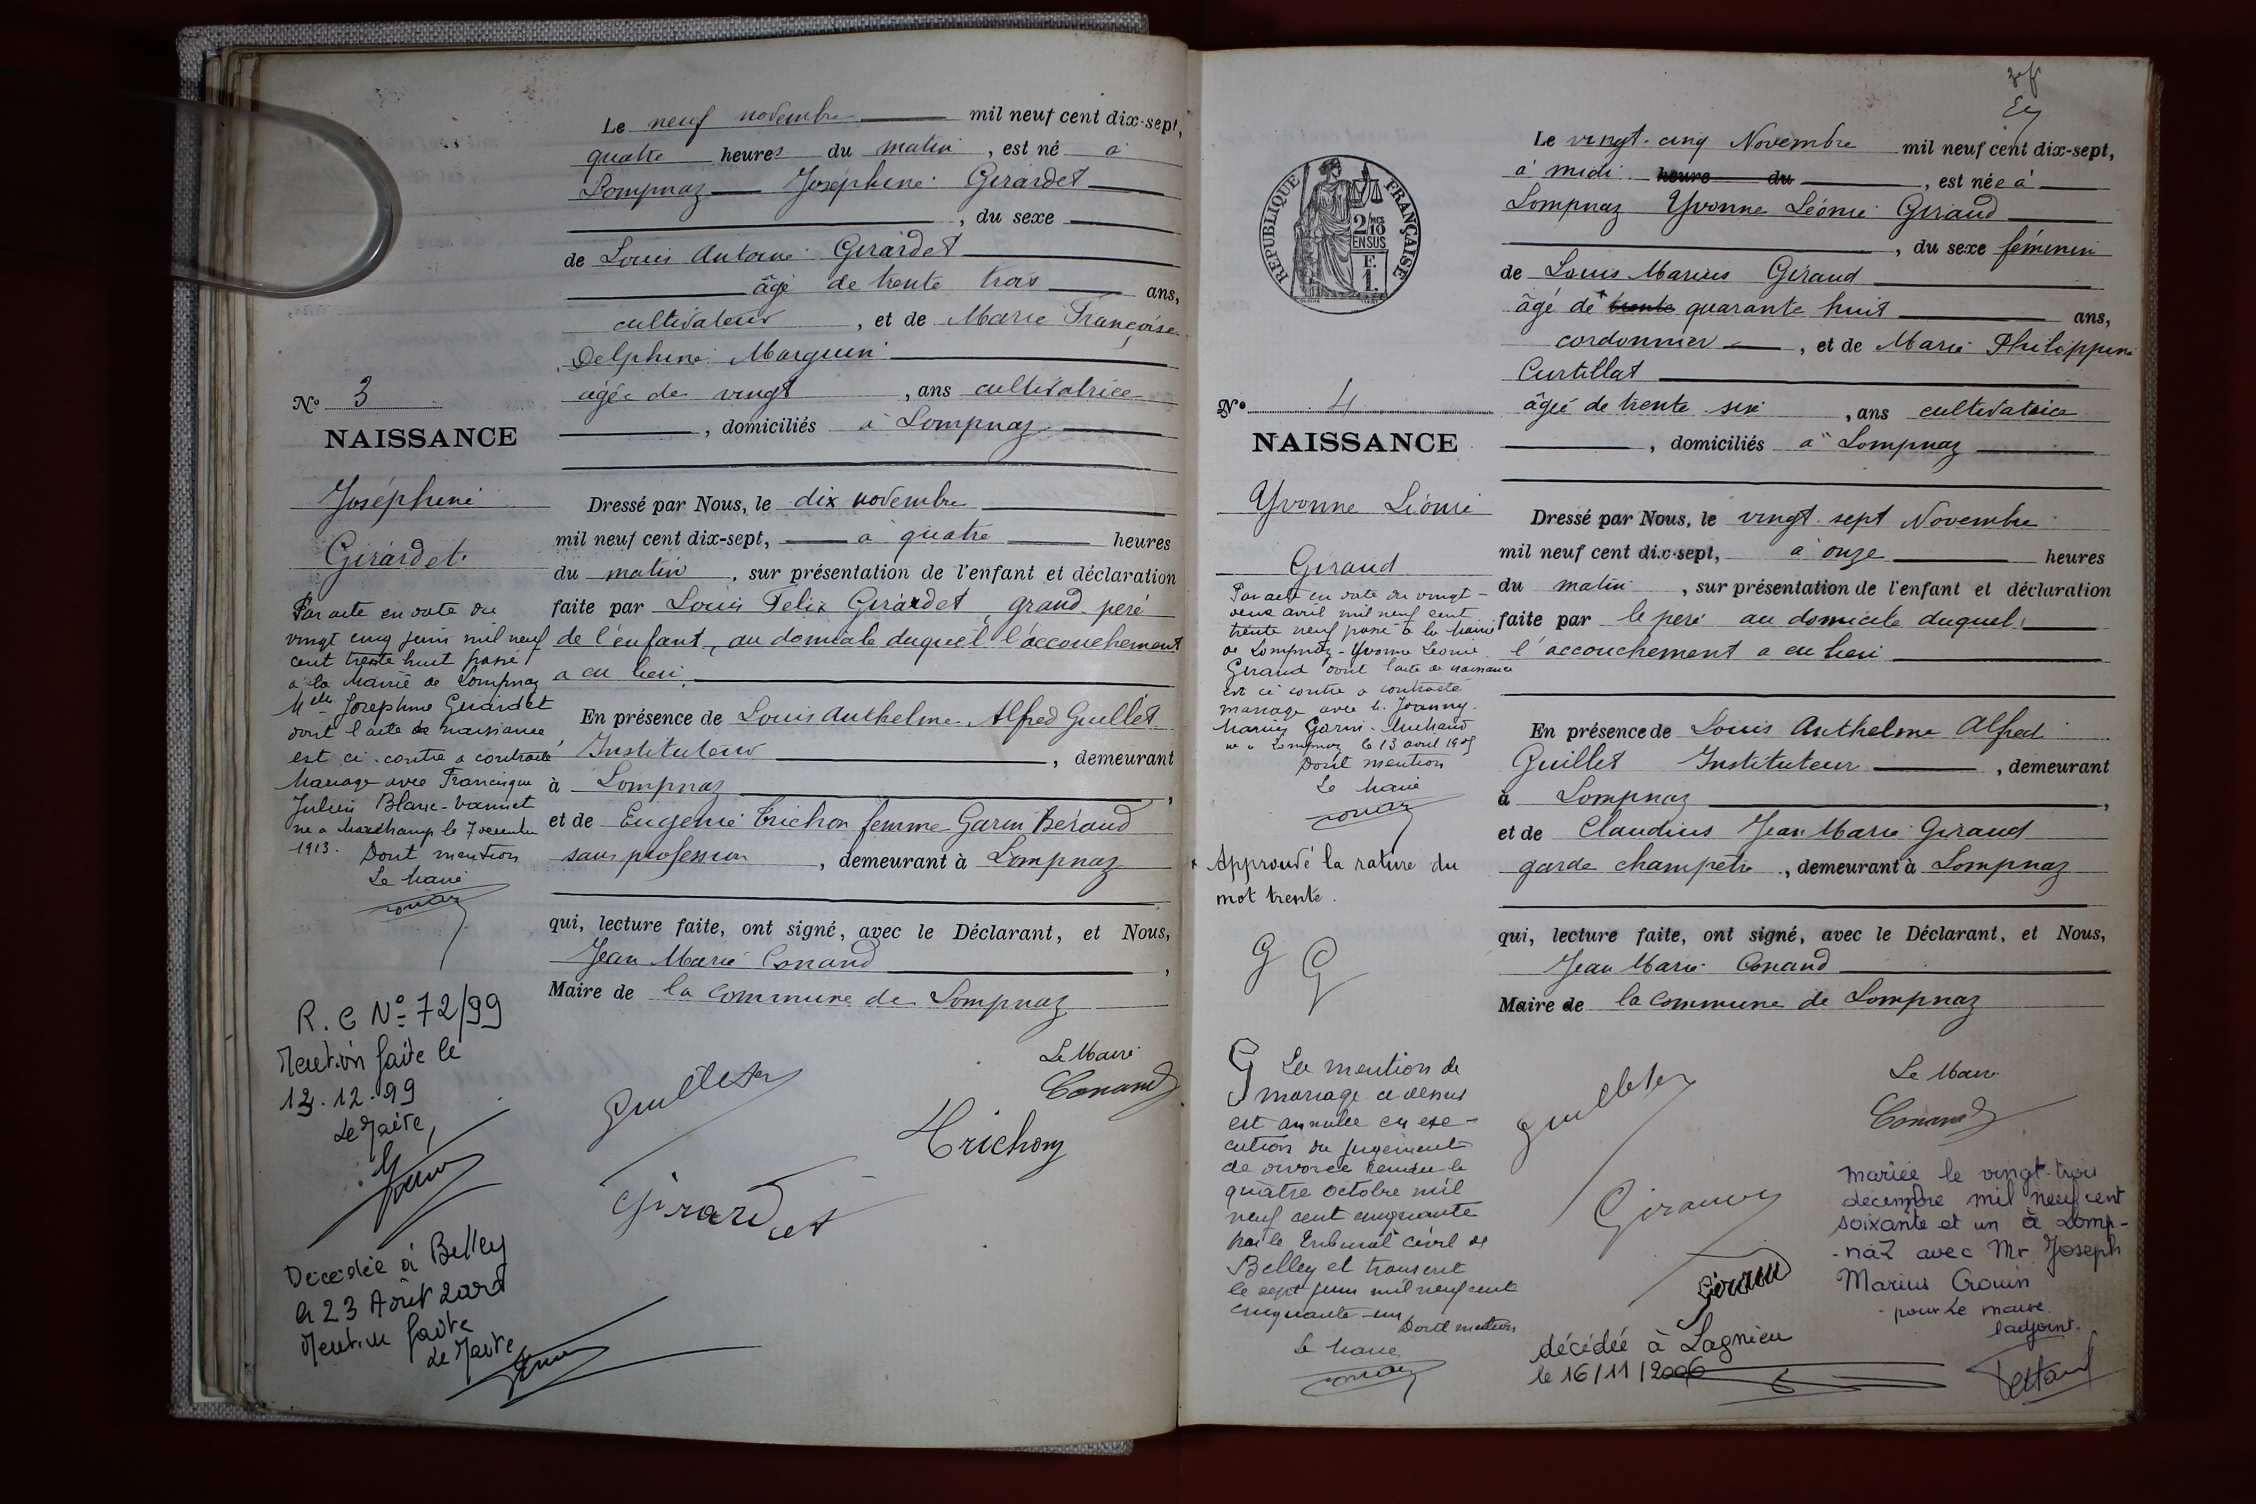 Le neuf novembre mil neuf cent dix-sept,
quatre heures du matin, est né à
Lompnaz Joséphine Girardet
, du sexe
de Louis Antoine Girardet
âgé de trente trois ans,
cultivateur, et de Marie Françoise
Delphine Marguin
âgée de vingt, ans cultivatrice
, domiciliés à Lompnaz
No 3
NAISSANCE
Joséphine
Girardet.
Dressé par Nous, le dix novembre
mil neuf cent dix-sept, à quatre heures
du matin, sur présentation de l'enfant et déclaration
faite par Louis Felix Girardet, grand-père
de l'enfant, au domicile duquel l'accouchement
a eu lieu,
En présence de Louis Anthelme Alfred Guillet
Instituteur, demeurant
à Lompnaz,
et de Eugénie Trichon femme Garin Beraud
sans profession, demeurant à Lompnaz
qui, lecture faite, ont signé, avec le Déclarant, et Nous,
Jean Marie Conand,
Maire de la commune de Lompnaz
Le Maire
Conand
Guillet
Trichon
Girardet
Par acte en date du
vingt cinq juin mil neuf
cent trente huit passé
à la Mairie de Lompnaz
Mlle Josephine Girardet
dont l'acte de naissance
est ci-contre a contracté
Mariage avec Francisque
Julien Blanc-
né a Marchamp le 7
1913. Dont mention
Le Maire
R.C No 72/99
Mention faite le
.12.99
Le Maire,
Décédée à Belley
le 23 Août
Mention faite
Le Maire
RÉPUBLIQUE FRANÇAISE
2/10
EN SUS
F.
1.
Le vingt-cinq Novembre mil neuf cent dix-sept,
à midi heure du, est née à
Lompnaz Yvonne Léonie Giraud
, du sexe féminin
de Louis Marius Giraud
âgé de trente quarante huit ans,
cordonnier, et de Marie Philippine
Curtillat
âgée de trente six, ans cultivatrice
, domiciliés à Lompnaz
No 4
NAISSANCE
Yvonne Léonie
Giraud
Dressé par Nous, le vingt-sept Novembre
mil neuf cent dix-sept, à onze heures
du matin, sur présentation de l'enfant et déclaration
faite par le père au domicile duquel
l'accouchement a eu lieu
En présence de Louis Anthelme Alfred
Guillet Instituteur, demeurant
à Lompnaz,
et de Claudius Jean Marie Giraud
garde champêtre, demeurant à Lompnaz
qui, lecture faite, ont signé, avec le Déclarant, et Nous,
Jean Marie Conand
Maire de la Commune de Lompnaz
Le Maire
Conand
Guillet
Giraud
Giraud
Par acte en date du vingt-
avril mil neuf cent
trente neuf passé à la Mairie
de Lompnaz - Yvonne Léonie
Giraud dont l'acte de naissance
est ci contre a contracté
mariage avec M. Joanny
Marius Garin-Michaud
né à Lompnaz le 13 avril
Dont mention
Le Maire
Approuvé la rature du
mot trente.
G G
G La mention de
mariage ci dessus
est annulée en exé-
cution du jugement
de divorce rendu le
quatre octobre mil
neuf cent cinquante
par le Tribunal civil de
Belley et transcrit
le sept juin mil neuf cent
cinquante-un
Dont mention
le Maire
mariée le vingt-trois
décembre mil neuf cent
soixante et un à Lomp-
-naz avec Mr Joseph
Marius Crouin
pour le maire
l'adjoint.
décédée à Lagnieu
le 16/11/2006